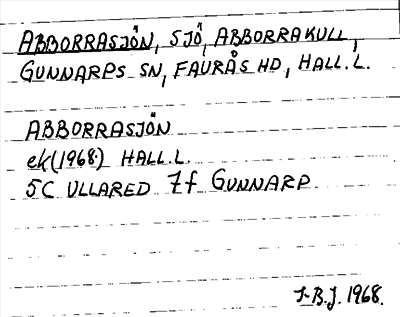 ABBORRASJÖN, SJÖ, ABBORRAKULL,
GUNNARPS SN, FAURÅS HD, HALL.L.
ABBORRASJÖN
ek(1968) HALL.L.
5C ULLARED 7f GUNNARP
J-B.J. 1968.